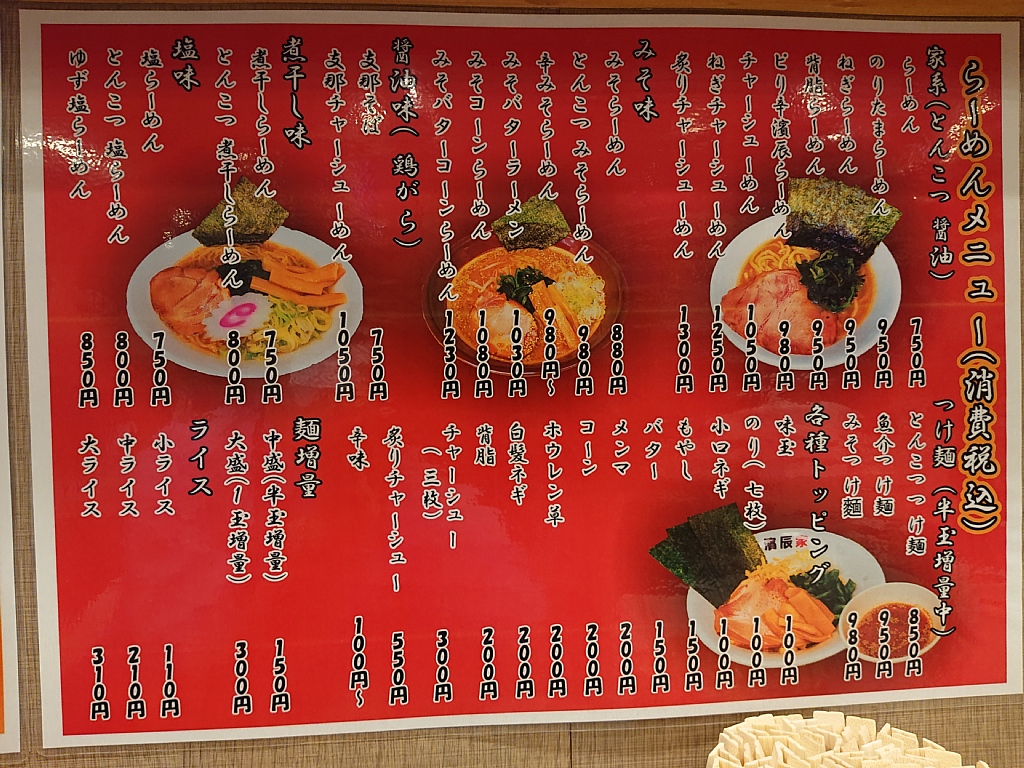 らーめんメニュー(消費税込)
家系(とんこつ 醤油)
らーめん 750円
のりたまらーめん 950円
ねぎらーめん 950円
背脂らーめん 950円
ピリ辛濱辰らーめん 980円
チャーシューめん 1050円
ねぎチャーシューめん 1250円
炙りチャーシューめん 1300円
みそ味
みそらーめん 880円
とんこつ みそらーめん 980円
辛みそらーめん 980円~
みそバターラーメン 1030円
みそコーンらーめん 1080円
みそバターコーンらーめん 1230円
醤油味( 鶏がら)
支那そば 750円
支那チャーシューめん 1050円
煮干し味
煮干しらーめん 750円
とんこつ 煮干しらーめん 800円
塩味
塩らーめん 750円
とんこつ 塩らーめん 800円
ゆず塩らーめん 850円
つけ麺 (半玉増量中)
とんこつつけ麺 850円
魚介つけ麺 950円
みそつけ麺 980円
各種トッピング
味玉 100円
のり(七枚) 100円
小口ネギ 100円
もやし 150円
バター 150円
メンマ 200円
コーン 200円
ホウレン草 200円
白髪ネギ 200円
背脂 200円
チャーシュー(三枚) 300円
炙りチャーシュー 550円
辛味 100円~
麺増量
中盛(半玉増量) 150円
大盛(1玉増量) 300円
ライス
小ライス 110円
中ライス 210円
大ライス 310円
濱辰家